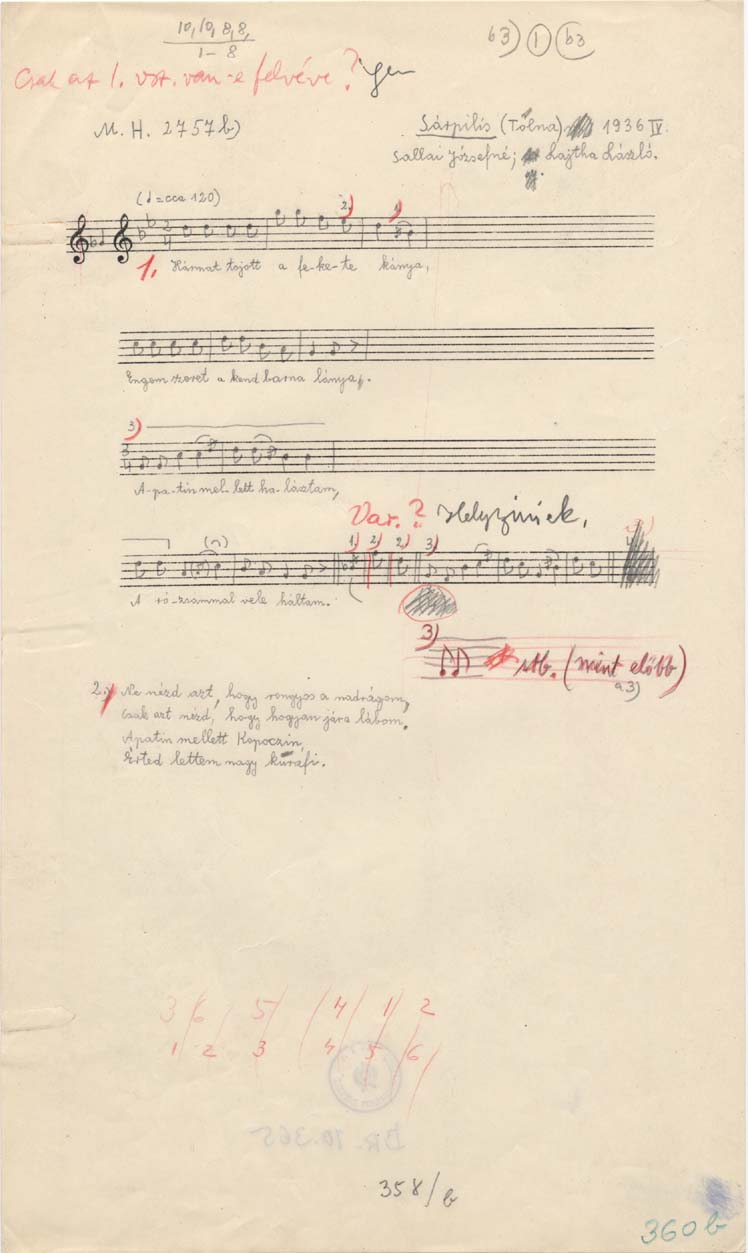 10, 10, 8, 8,
1-8
b3) 1 (b3
Csak az 1. vsz. van-e felvéve? Igen
M. H. 2757b)
Sárpilis (Tolna) 1936 IV.
Sallai Józsefné; Lajtha László.
(♩=cca 120)
2.) 1)
2
4
1. Hármat tojott a fe-ke-te kánya,
Engom szeret a kend barna lánya.
3)
3
4
A-pa-tin mel-lett ha-lásztam,
Var.? Helyszinúek,
1.) 2) 2.) 3)
A ró-zsámmal vele háltam.
3)
stb. (mint előbb)
a 3)
2.) Ne nézd azt, hogy rongyos a nadrágom,
Csak azt nézd, hogy hogyan jára lábom.
Apatin mellett Kopoczin,
Érted lettem nagy kurafi.
3 6 5 4 1 2
1 2 3 4 5 6
BR. 10.365
358/b
360b